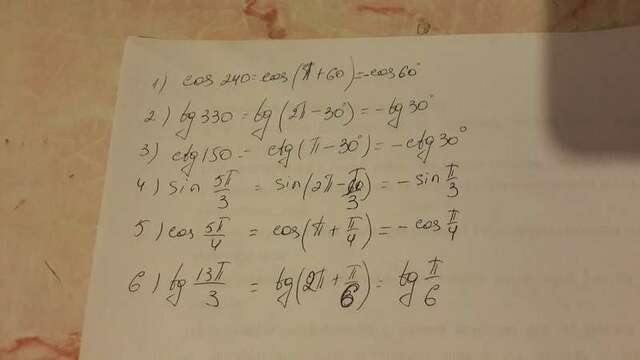 1) cos 240 = cos(π+60) = -cos60°
2) tg 330 = tg(2π-30°) = -tg 30°
3) ctg 150 = ctg(π-30°) = -ctg 30°
4) sin 5π/3 = sin(2π-π/3) = -sin π/3
5) cos 5π/4 = cos(π+π/4) = -cos π/4
6) tg 13π/3 = tg(2π+π/6) = tg π/6